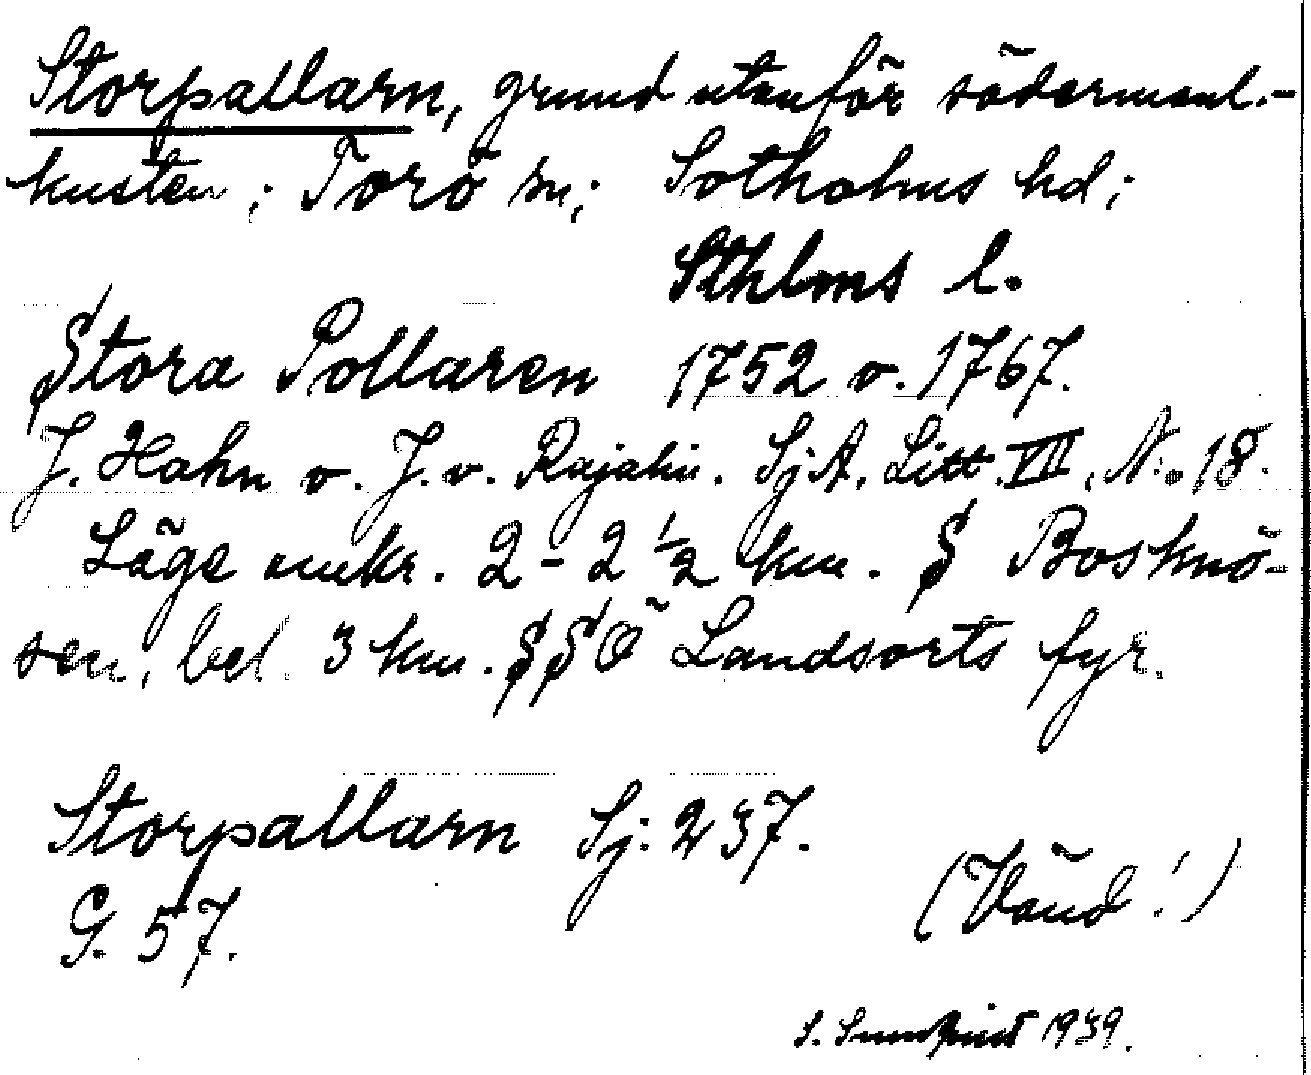 Storpallarn, grund utanför södermanl.-
kusten; Torö sn; Sotholms hd;
Sthlms l.
Stora Pollaren 1752 o. 1767.
J. Hahn o. J. v. Rajalin. SjA. Litt. VII, N:o 18.
Läge omkr. 2-2 ½ km. S Bosknö-
sen, bel. 3 km. SSÖ Landsorts fyr.
Storpallarn Sj: 237.
G. 57.
(Vänd!)
S. Sundquist 1939.